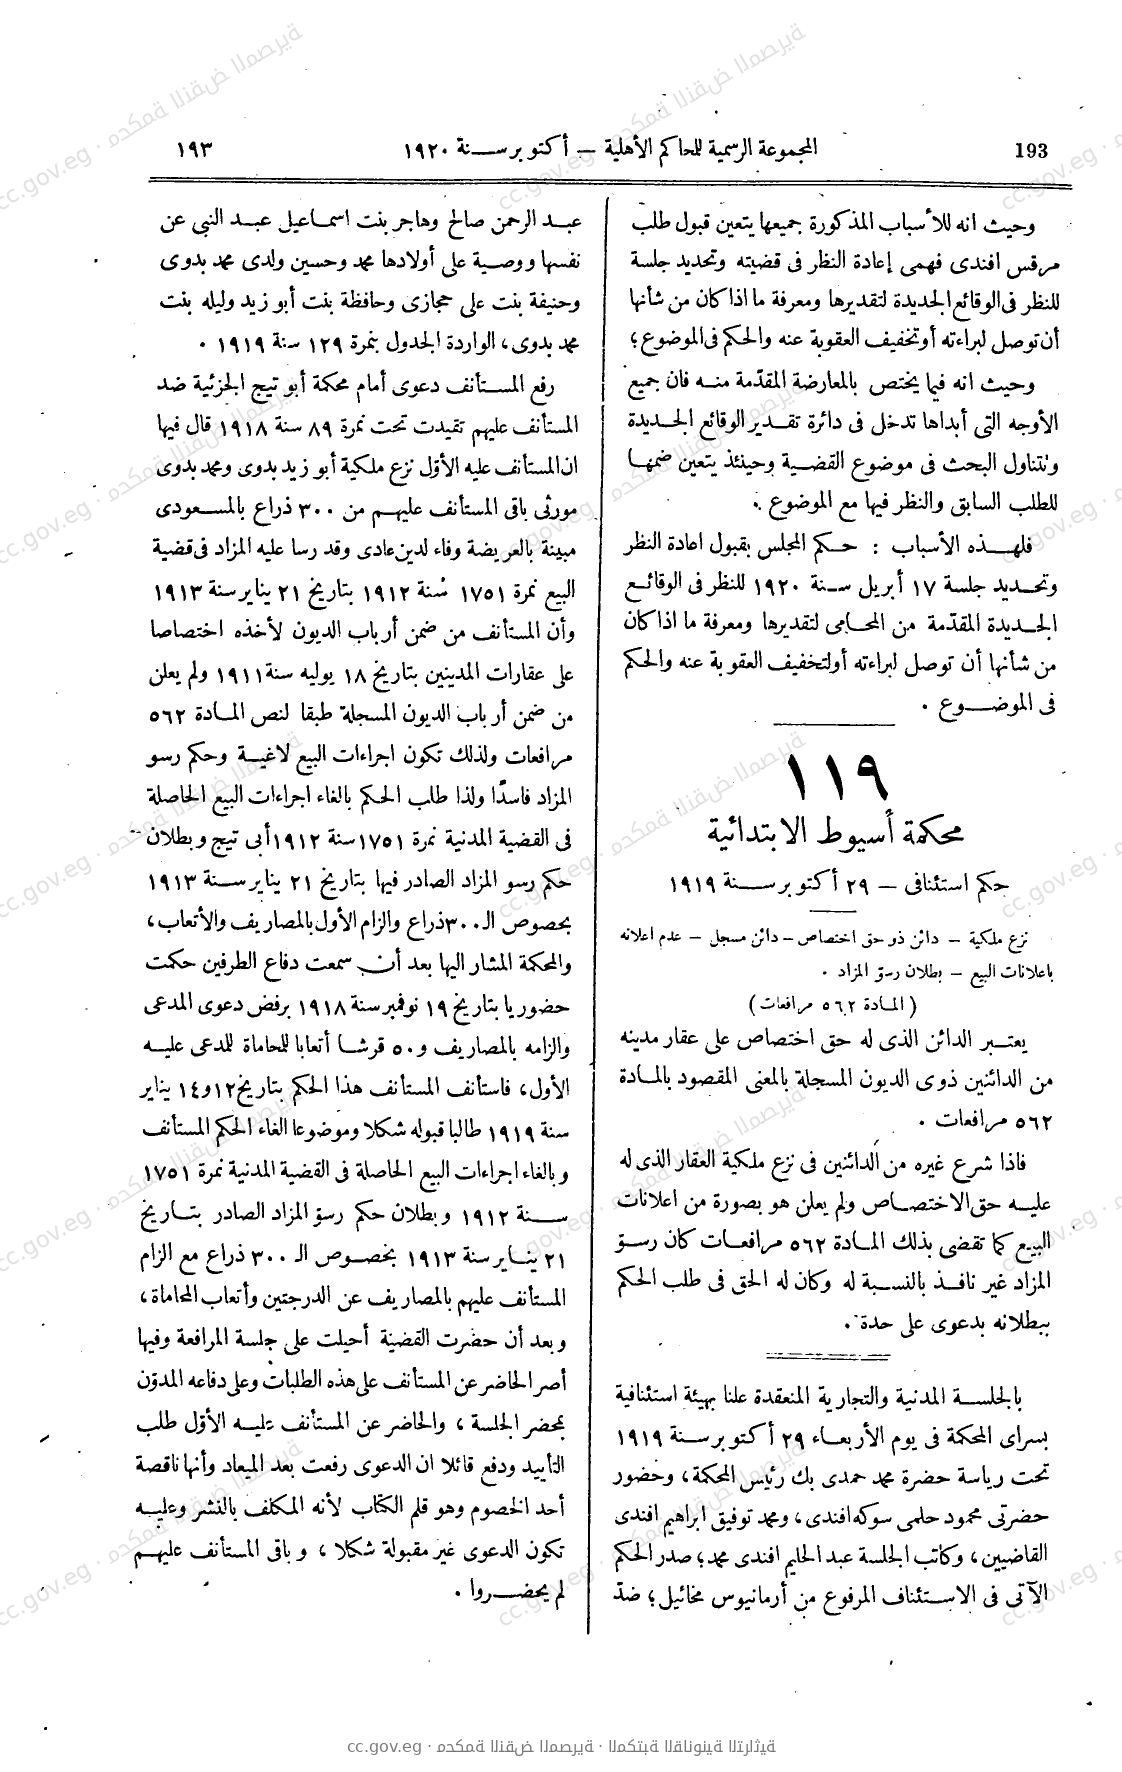 193
المجموعة الرسمية للمحاكم الأهلية – أكتوبر سنة ١٩٢٠
١٩٣
وحيث انه للأسباب المذكورة جميعها يتعين قبول طلب
مرقس افندى فهمى إعادة النظر فى قضيته وتحديد جلسة
للنظر فى الوقائع الجديدة لتقديرها ومعرفة ما اذا كان من شأنها
أن توصل لبراءته أو تخفيف العقوبة عنه والحكم فى الموضوع؛
وحيث انه فيما يختص بالمعارضة المقدّمة منه فان جميع
الأوجه التى أبداها تدخل فى دائرة تقدير الوقائع الجديدة
وتتناول البحث فى موضوع القضية وحينئذ يتعين ضمها
للطلب السابق والنظر فيها مع الموضوع .
فلهذه الأسباب : حكم المجلس بقبول اعادة النظر
وتحديد جلسة ١٧ أبريل سنة ١٩٢٠ للنظر فى الوقائع
الجديدة المقدّمة من المحامى لتقديرها ومعرفة ما اذا كان
من شأنها أن توصل لبراءته أو لتخفيف العقوبة عنه والحكم
فى الموضوع .
١١٩
محكمة أسيوط الابتدائية
حكم استئنافى – ٢٩ أكتوبر سنة ١٩١٩
نزع ملكية – دائن ذو حق اختصاص – دائن مسجل – عدم اعلانه
باعلانات البيع – بطلان رسوّ المزاد .
(المادة ٥٦٢ مرافعات)
يعتبر الدائن الذى له حق اختصاص على عقار مدينه
من الدائنين ذوى الديون المسجلة بالمعنى المقصود بالمادة
٥٦٢ مرافعات .
فاذا شرع غيره من الدائنين فى نزع ملكية العقار الذى له
عليه حق الاختصاص ولم يعلن هو بصورة من اعلانات
البيع كما تقضى بذلك المادة ٥٦٢ مرافعات كان رسوّ
المزاد غير نافذ بالنسبة له وكان له الحق فى طلب الحكم
ببطلانه بدعوى على حدة .
بالجلسة المدنية والتجارية المنعقدة علنا بهيئة استئنافية
بسراى المحكمة فى يوم الأربعاء ٢٩ أكتوبر سنة ١٩١٩
تحت رياسة حضرة محمد حمدى بك رئيس المحكمة، وحضور
حضرتى محمود حلمى سوكه افندى، ومحمد توفيق ابراهيم افندى
القاضيين، وكاتب الجلسة عبد الحليم افندى محمد؛ صدر الحكم
الآتى فى الاستئناف المرفوع من أرمانيوس مخائيل؛ ضدّ
عبد الرحمن صالح وهاجر بنت اسماعيل عبد النبى عن
نفسها ووصية على أولادها محمد وحسين ولدى محمد بدوى
وحنيفة بنت على حجازى وحافظة بنت أبو زيد وليله بنت
محمد بدوى، الواردة الجدول بنمرة ١٢٩ سنة ١٩١٩ .
رفع المستأنف دعوى أمام محكمة أبو تيج الجزئية ضد
المستأنف عليهم تقيدت تحت نمرة ٨٩ سنة ١٩١٨ قال فيها
ان المستأنف عليه الأوّل نزع ملكية أبو زيد بدوى ومحمد بدوى
مورثى باقى المستأنف عليهم من ٣٠٠ ذراع بالمسعودى
مبينة بالعريضة وفاء لدين عادى وقد رسا عليه المزاد فى قضية
البيع نمرة ١٧٥١ سنة ١٩١٢ بتاريخ ٢١ يناير سنة ١٩١٣
وأن المستأنف من ضمن أرباب الديون لأخذه اختصاصا
على عقارات المدينين بتاريخ ١٨ يوليه سنة ١٩١١ ولم يعلن
من ضمن أرباب الديون المسجلة طبقا لنص المادة ٥٦٢
مرافعات ولذلك تكون اجراءات البيع لاغية وحكم رسو
المزاد فاسدًا ولذا طلب الحكم بالغاء اجراءات البيع الحاصلة
فى القضية المدنية نمرة ١٧٥١ سنة ١٩١٢ أبى تيج وبطلان
حكم رسو المزاد الصادر فيها بتاريخ ٢١ يناير سنة ١٩١٣
بخصوص الـ ٣٠٠ ذراع والزام الأول بالمصاريف والأتعاب،
والمحكمة المشار اليها بعد أن سمعت دفاع الطرفين حكمت
حضوريا بتاريخ ١٩ نوفمبر سنة ١٩١٨ برفض دعوى المدعى
والزامه بالمصاريف و ٥٠ قرشا أتعابا للمحاماة للمدعى عليه
الأول، فاستأنف المستأنف هذا الحكم بتاريخ ١٢ و ١٤ يناير
سنة ١٩١٩ طالبا قبوله شكلا وموضوعا الغاء الحكم المستأنف
وبالغاء اجراءات البيع الحاصلة فى القضية المدنية نمرة ١٧٥١
سنة ١٩١٢ وبطلان حكم رسوّ المزاد الصادر بتاريخ
٢١ يناير سنة ١٩١٣ بخصوص الـ ٣٠٠ ذراع مع الزام
المستأنف عليهم بالمصاريف عن الدرجتين وأتعاب المحاماة،
وبعد أن حضرت القضية أحيلت على جلسة المرافعة وفيها
أصر الحاضر عن المستأنف على هذه الطلبات وعلى دفاعه المدوّن
بمحضر الجلسة ، والحاضر عن المستأنف عليه الأوّل طلب
التأييد ودفع قائلا ان الدعوى رفعت بعد الميعاد وأنها ناقصة
أحد الخصوم وهو قلم الكتاب لأنه المكلف بالنشر وعليه
تكون الدعوى غير مقبولة شكلا ، وباقى المستأنف عليهم
لم يحضروا .
cc.gov.eg · محكمة النقض المصرية · المكتبة القانونية التراثية